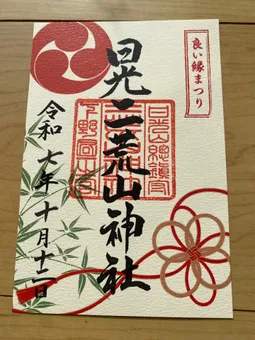 良い縁まつり
日光二荒山神社
令和七年十月十二日
日光山總鎮守
下野國一之宮